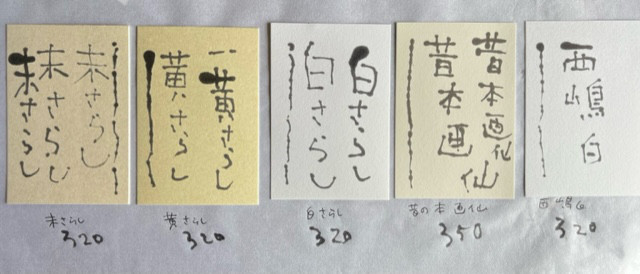 未さらし
未さらし
未さらし
未さらし
320
一黄さらし
黄さらし
黄さらし
320
白さらし
白さらし
白さらし
320
昔本画仙
昔本画仙
昔の本画仙
350
西嶋白
西嶋白
320